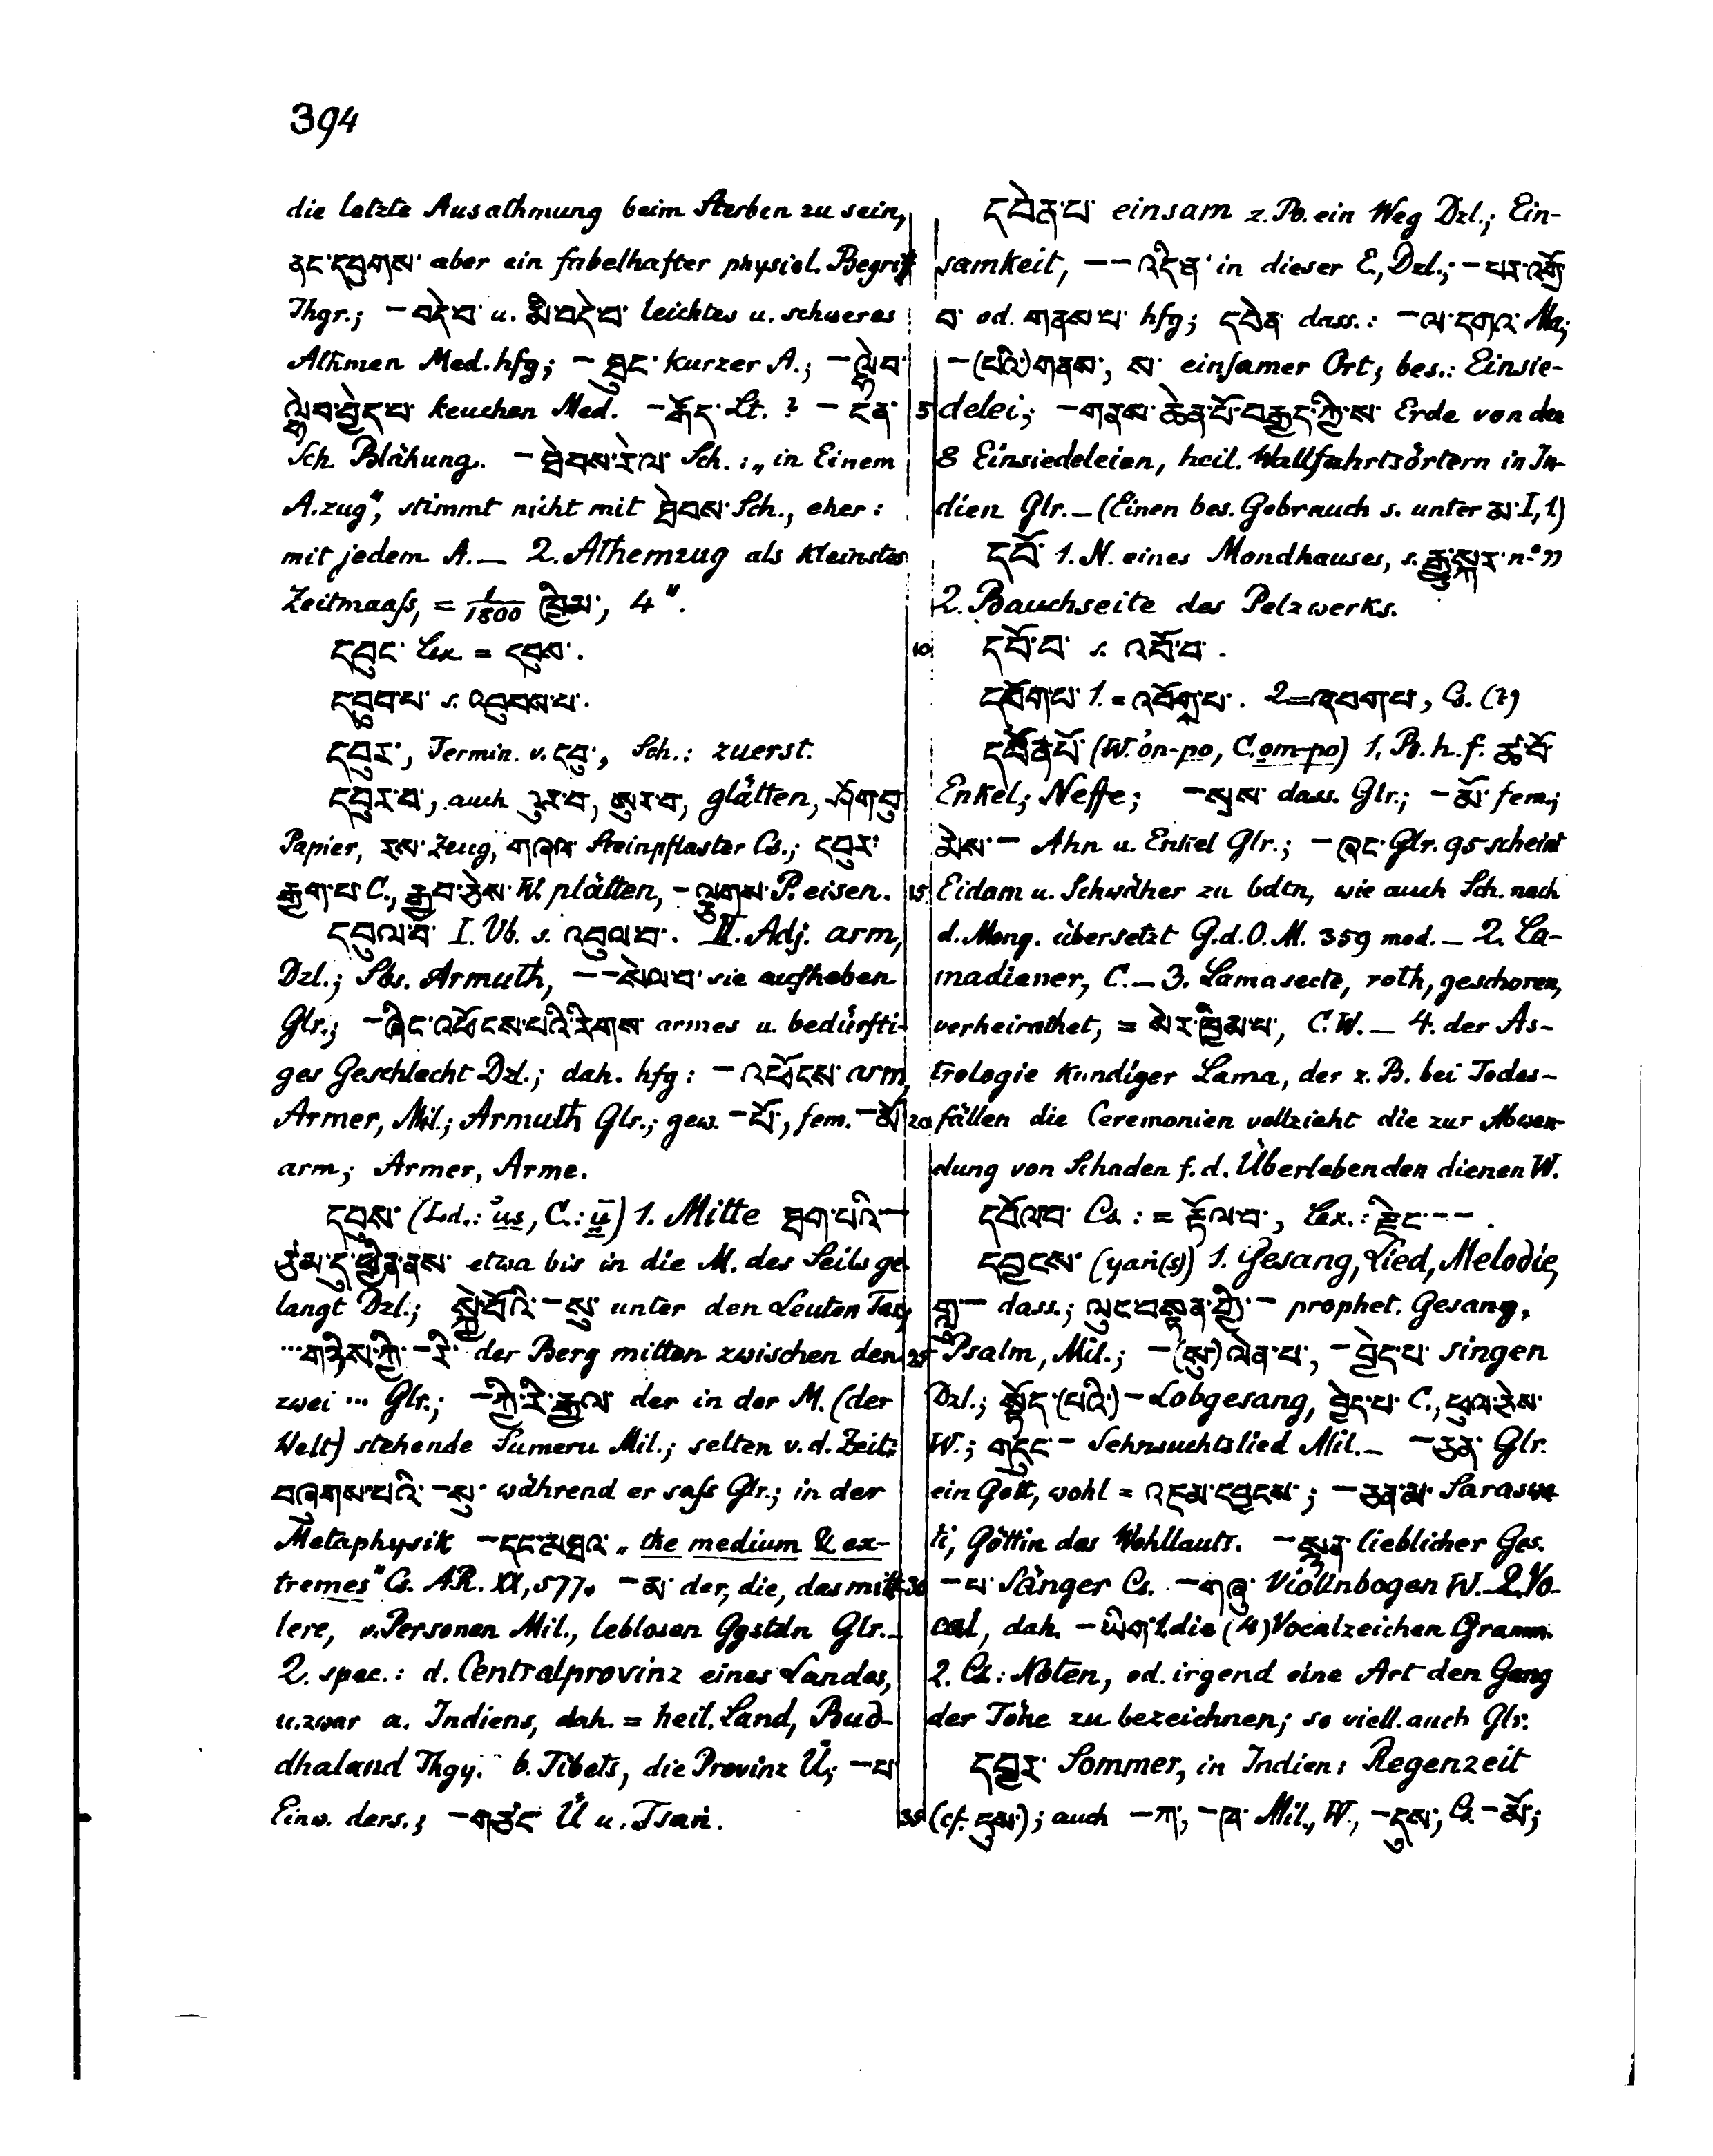 394
die letzte Ausathmung beim Sterben zu sein,
ནང་དབུགས་ aber ein fabelhafter physiol. Begriff
Thgr.; – བདེ་བ་ u. མི་བདེ་བ་ leichtes u. schweres
Athmen Med. hfg; – ཐུང་ kurzer A.; – ལྷེབ་
ལྷེབ་བྱེད་པ་ keuchen Med. – རྒོད་ Lt. ? – ངན་
Sch. Blähung. – ཐེབས་རེལ་ Sch.: „in Einem
A.zug", stimmt nicht mit ཐེབས་ Sch., eher:
mit jedem A. — 2. Athemzug als kleinstes
Zeitmaaſs, = 1/1800 4".
དབུང་ Lex. = དབུས་.
དབུབ་པ་ s. འབུབས་པ་.
དབུར་, Termin. v. དབུ་, Sch.: zuerst.
དབུར་བ་, auch ཕུར་བ, སུར་བ, glätten, ཤོག་བུ
Papier, རས་ Zeug, གཞལ་ Steinpflaster Cs.; དབུར་
རྒྱག་པ་ C., རྒྱབ་ཅེས་ W. plätten, – ལྕགས་ P. eisen.
དབུལ་བ་ I. Vb. s. འབུལ་བ་. II. Adj. arm,
Dzl.; Sbs. Armuth, –– སེལ་བ་ sie aufheben
Glr.; – ཞིང་འཕོངས་པའི་རིགས་ armes u. bedürfti-
ges Geschlecht Dzl.; dah. hfg: – འཕོངས་ arm,
Armer, Mil.; Armuth Glr.; gew. – པོ་, fem. – མོ
arm; Armer, Arme.
དབུས་ (Ld.: us, C.: ṳ̄) 1. Mitte ཐག་པའི་ –
ཙམ་དུ་ཕྱིན་ནས་ etwa bis in die M. des Seils ge
langt Dzl.; སྐྱེ་བོའི་ – སུ་ unter den Leuten
... གཉིས་ཀྱི་ – རི་ der Berg mitten zwischen den
zwei ... Glr.; – ཀྱི་རི་རྒྱལ་ der in der M. (der
Welt) stehende Sumeru Mil.; selten v. d. Zeit:
བཞུགས་པའི་ – སུ་ während er saſs Glr.; in der
Metaphysik – དང་མཐའ་ „the medium & ex-
tremes" Cs. AR. XX, 577. – མ་ der, die, das mitt-
lere, v. Personen Mil., leblosen Ggstdn Glr. —
2. spec.: d. Centralprovinz eines Landes,
u. zwar a. Indiens, dah. = heil. Land, Bud-
dhaland Thgy. b. Tibets, die Provinz Ü; – པ
Einw. ders.; – གཙང Ü u. Tsaṅ.
དབེན་པ་ einsam z. B. ein Weg Dzl.; Ein-
samkeit, –– འདི་ན་ in dieser E., Dzl.; – པར་འགྲོ་
བ་ od. གནས་པ་ hfg; དབེན་ dass.: – ལ་དགའ་
– (པའི་) གནས་, ས་ einsamer Ort; bes.: Einsie-
5 delei; – གནས་ཆེན་པོ་བརྒྱད་ཀྱི་ས་ Erde von den
8 Einsiedeleien, heil. Wallfahrtsörtern in In-
dien Glr. – (Einen bes. Gebrauch s. unter མ་ I, 1)
དབོ་ 1. N. eines Mondhauses, s. རྒྱུ་སྐར་ nº
2. Bauchseite des Pelzwerks.
10 དབོ་བ་ s. འབོ་བ་.
དབོག་པ་ 1. = འབོག་པ་. 2. = འབག་པ་, Cs. (?)
དབོན་པོ་ (W. ón-po, C. om-po) 1. B. h. f. ཚ་བོ་
Enkel; Neffe; – སྲས་ dass. Glr.; – མོ་ fem.;
མེས་ – Ahn u. Enkel Glr.; – ཞང་ Glr. 95 scheint
15 Eidam u. Schwäher zu bdtn, wie auch Sch. nach
d. Mong. übersetzt G. d. O. M. 359 med. — 2. La-
madiener, C. — 3. Lamasecte, roth, geschoren,
verheirathet, = སེར་ཁྱིམ་པ་, C. W. — 4. der As-
trologie kundiger Lama, der z. B. bei Todes-
20 fällen die Ceremonien vollzieht die zur Abwen-
dung von Schaden f. d. Überlebenden dienen W.
དབོལ་བ Cs.: = རྟོལ་བ་, Lex.: –– .
དབྱངས་ (yaṅ(s)) 1. Gesang, Lied, Melodie,
གླུ་ – dass.; ལུང་བསྟན་གྱི་ – prophet. Gesang,
25 Psalm, Mil.; – (སུ་) ལེན་པ་, – བྱེད་པ་ singen
Dzl.; སྟོད་ (པའི་) – Lobgesang, བྱེད་པ་ C., ཕུལ་ཅེས་
W.; གདུང་ – Sehnsuchtslied Mil. — – ཅན་ Glr.
ein Gott, wohl = འཇམ་དབྱངས་; – ཅན་མ་ Saraswa
ti, Göttin des Wohllauts. – སྙན་ lieblicher Ges.
30 – པ་ Sänger Cs. – གཞུ་ Violinbogen W. — 2. Vo-
cal, dah. – ཡིག་ 1. die (4) Vocalzeichen Gramm.
2. Cs.: Noten, od. irgend eine Art den Gang
der Töne zu bezeichnen; so viell. auch Glr.
དབྱར་ Sommer, in Indien: Regenzeit
35 (cf. དུས་); auch – ཀ་, – ཁ་ Mil., W., – དུས་, C. – མོ་;